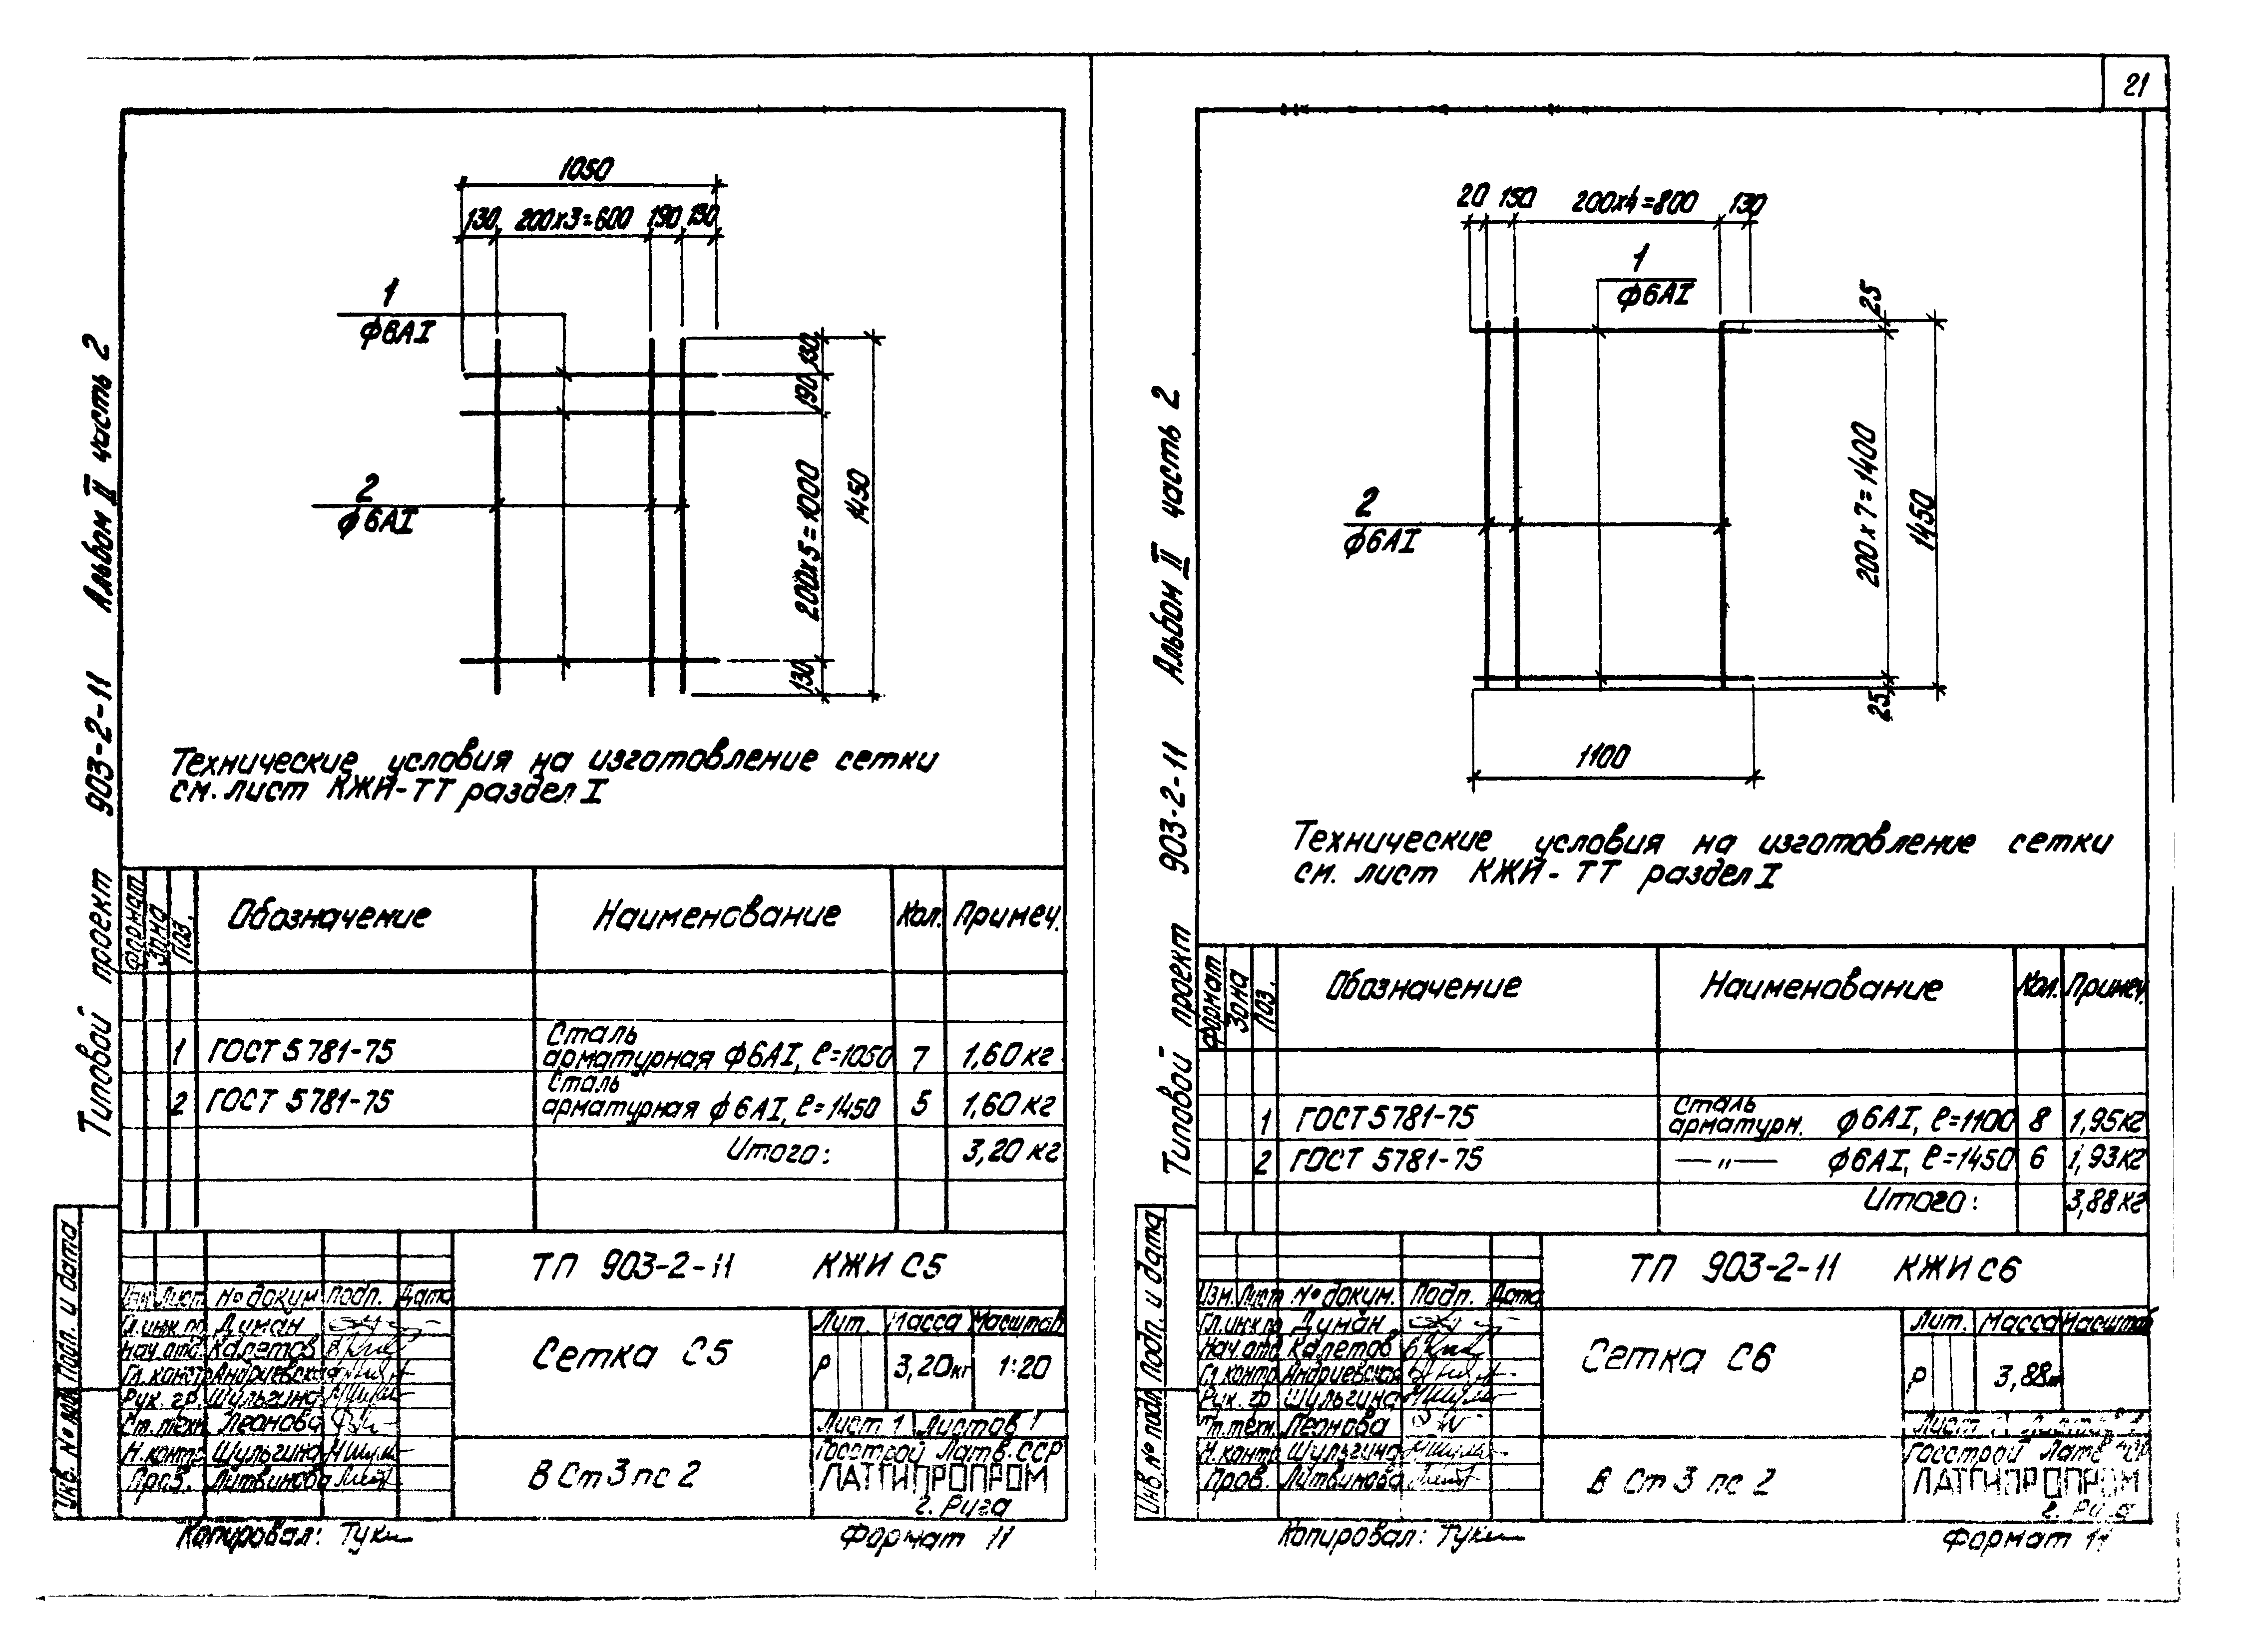 21
Типовой проект 903-2-11 Альбом II часть 2
1050
130 200х3=600 190 130
1
ф6АI
2
ф6АI
130
190
200х5=1000
130
1450
Технические условия на изготовление сетки
см. лист КЖИ-ТТ раздел I
Формат Зона Поз. Обозначение Наименование Кол. Примеч.
1 ГОСТ 5781-75 Сталь арматурная ф6АI, ℓ=1050 7 1,60кг
2 ГОСТ 5781-75 Сталь арматурная ф6АI, ℓ=1450 5 1,60кг
Итого: 3,20кг
ТП 903-2-11 КЖИ С5
Изм Лист № докум Подп. Дата
Гл.инж.пр Думан
Нач.отд. Калетов
Гл.констр Андриевская
Рук. гр. Шульгина
Ст.техн. Леонова
Н.контр. Шульгина
Пров. Литвинова
Сетка С5
Лит. Масса Масштаб
Р 3,20кг 1:20
Лист 1 Листов 1
В Ст 3 пс 2
Госстрой Латв.ССР
ЛАТГИПРОПРОМ
г. Рига
Инв. № подл. Подп. и дата
Копировал: Туки
Формат 11
Типовой проект 903-2-11 Альбом II часть 2
20 150 200х4=800 130
1
ф6АI
2
ф6АI
25
200х7=1400
25
1450
1100
Технические условия на изготовление сетки
см. лист КЖИ-ТТ раздел I
Формат Зона Поз. Обозначение Наименование Кол. Примеч.
1 ГОСТ 5781-75 Сталь арматурн. ф6АI, ℓ=1100 8 1,95кг
2 ГОСТ 5781-75 —"— ф6АI, ℓ=1450 6 1,93кг
Итого: 3,88кг
ТП 903-2-11 КЖИ С6
Изм. Лист № докум. Подп. Дата
Гл.инж.пр Думан
Нач.отд Калетов
Гл.контр Андриевская
Рук. гр Шульгина
Ст.техн. Леонова
Н.контр Шульгина
Пров. Литвинова
Сетка С6
Лит. Масса Масштаб
Р 3,88кг
Лист 1 Листов 1
В Ст 3 пс 2
Госстрой Латв ССР
ЛАТГИПРОПРОМ
г. Рига
Инв № подл. Подп. и дата
Копировал: Туки
Формат 11